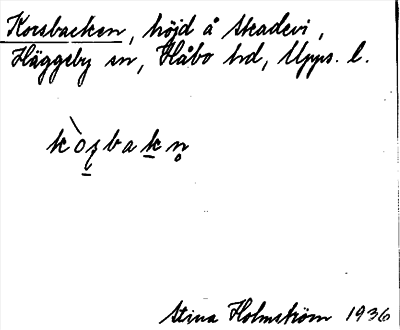 Korsbacken, höjd å Skadevi,
Häggeby sn, Håbo hd, Upps. l.
kòʂbakn̥
Stina Holmström 1936